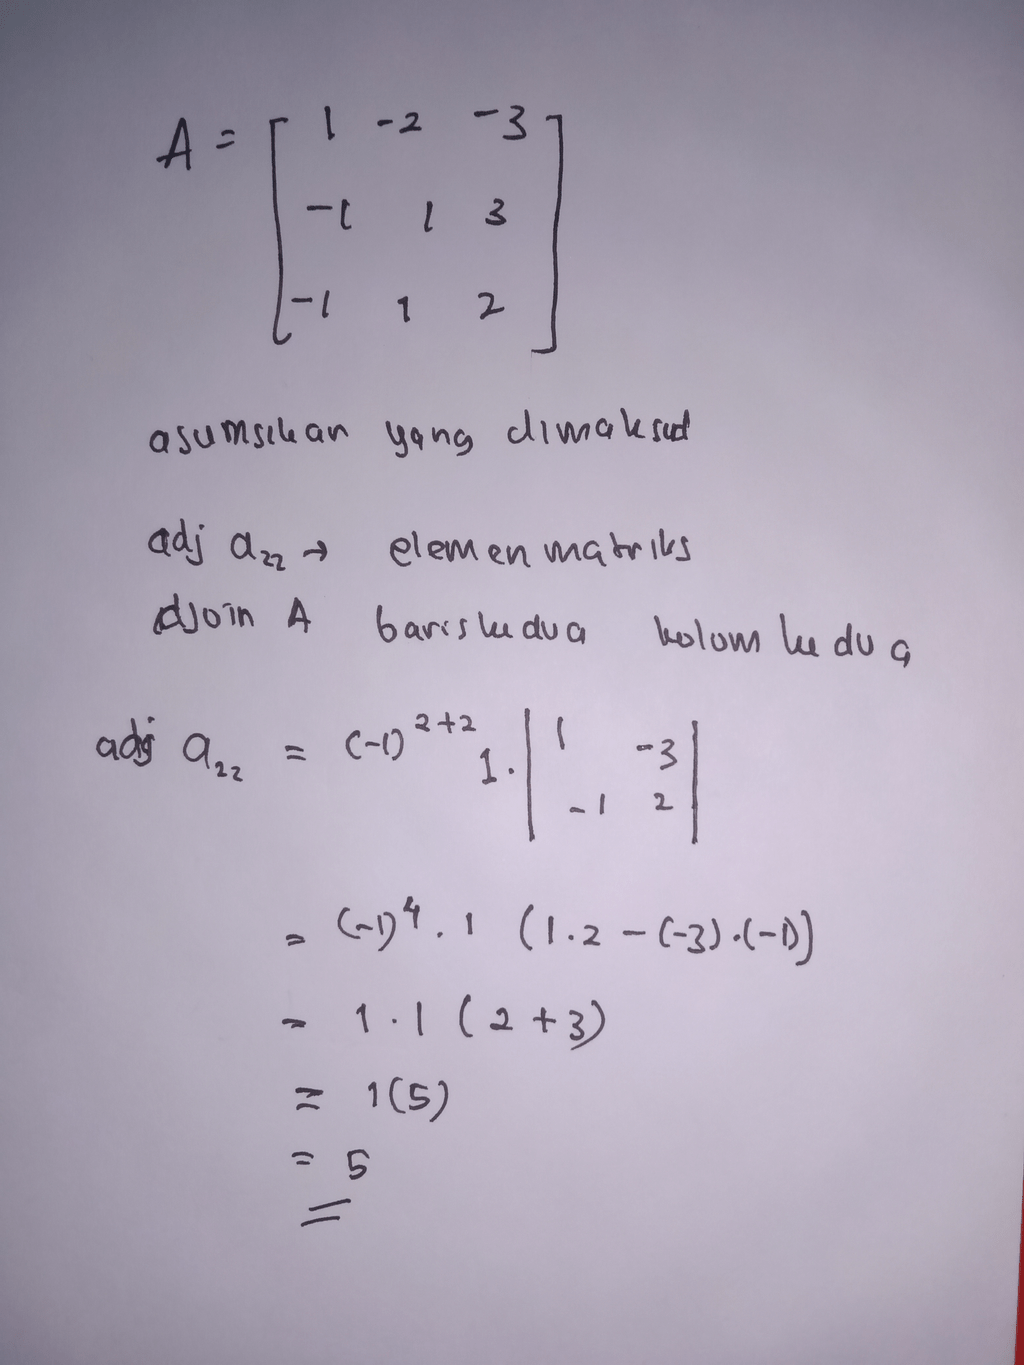 A = [ 1 -2 -3
-1 1 3
-1 1 2 ]
asumsikan yang dimaksud
adj a₂₂ → elemen matriks
djoin A baris kedua kolom kedua
adj a₂₂ = (-1)²⁺² 1. | 1 -3
-1 2 |
= (-1)⁴ . 1 (1.2 - (-3).(-1))
= 1.1 (2+3)
= 1(5)
= 5